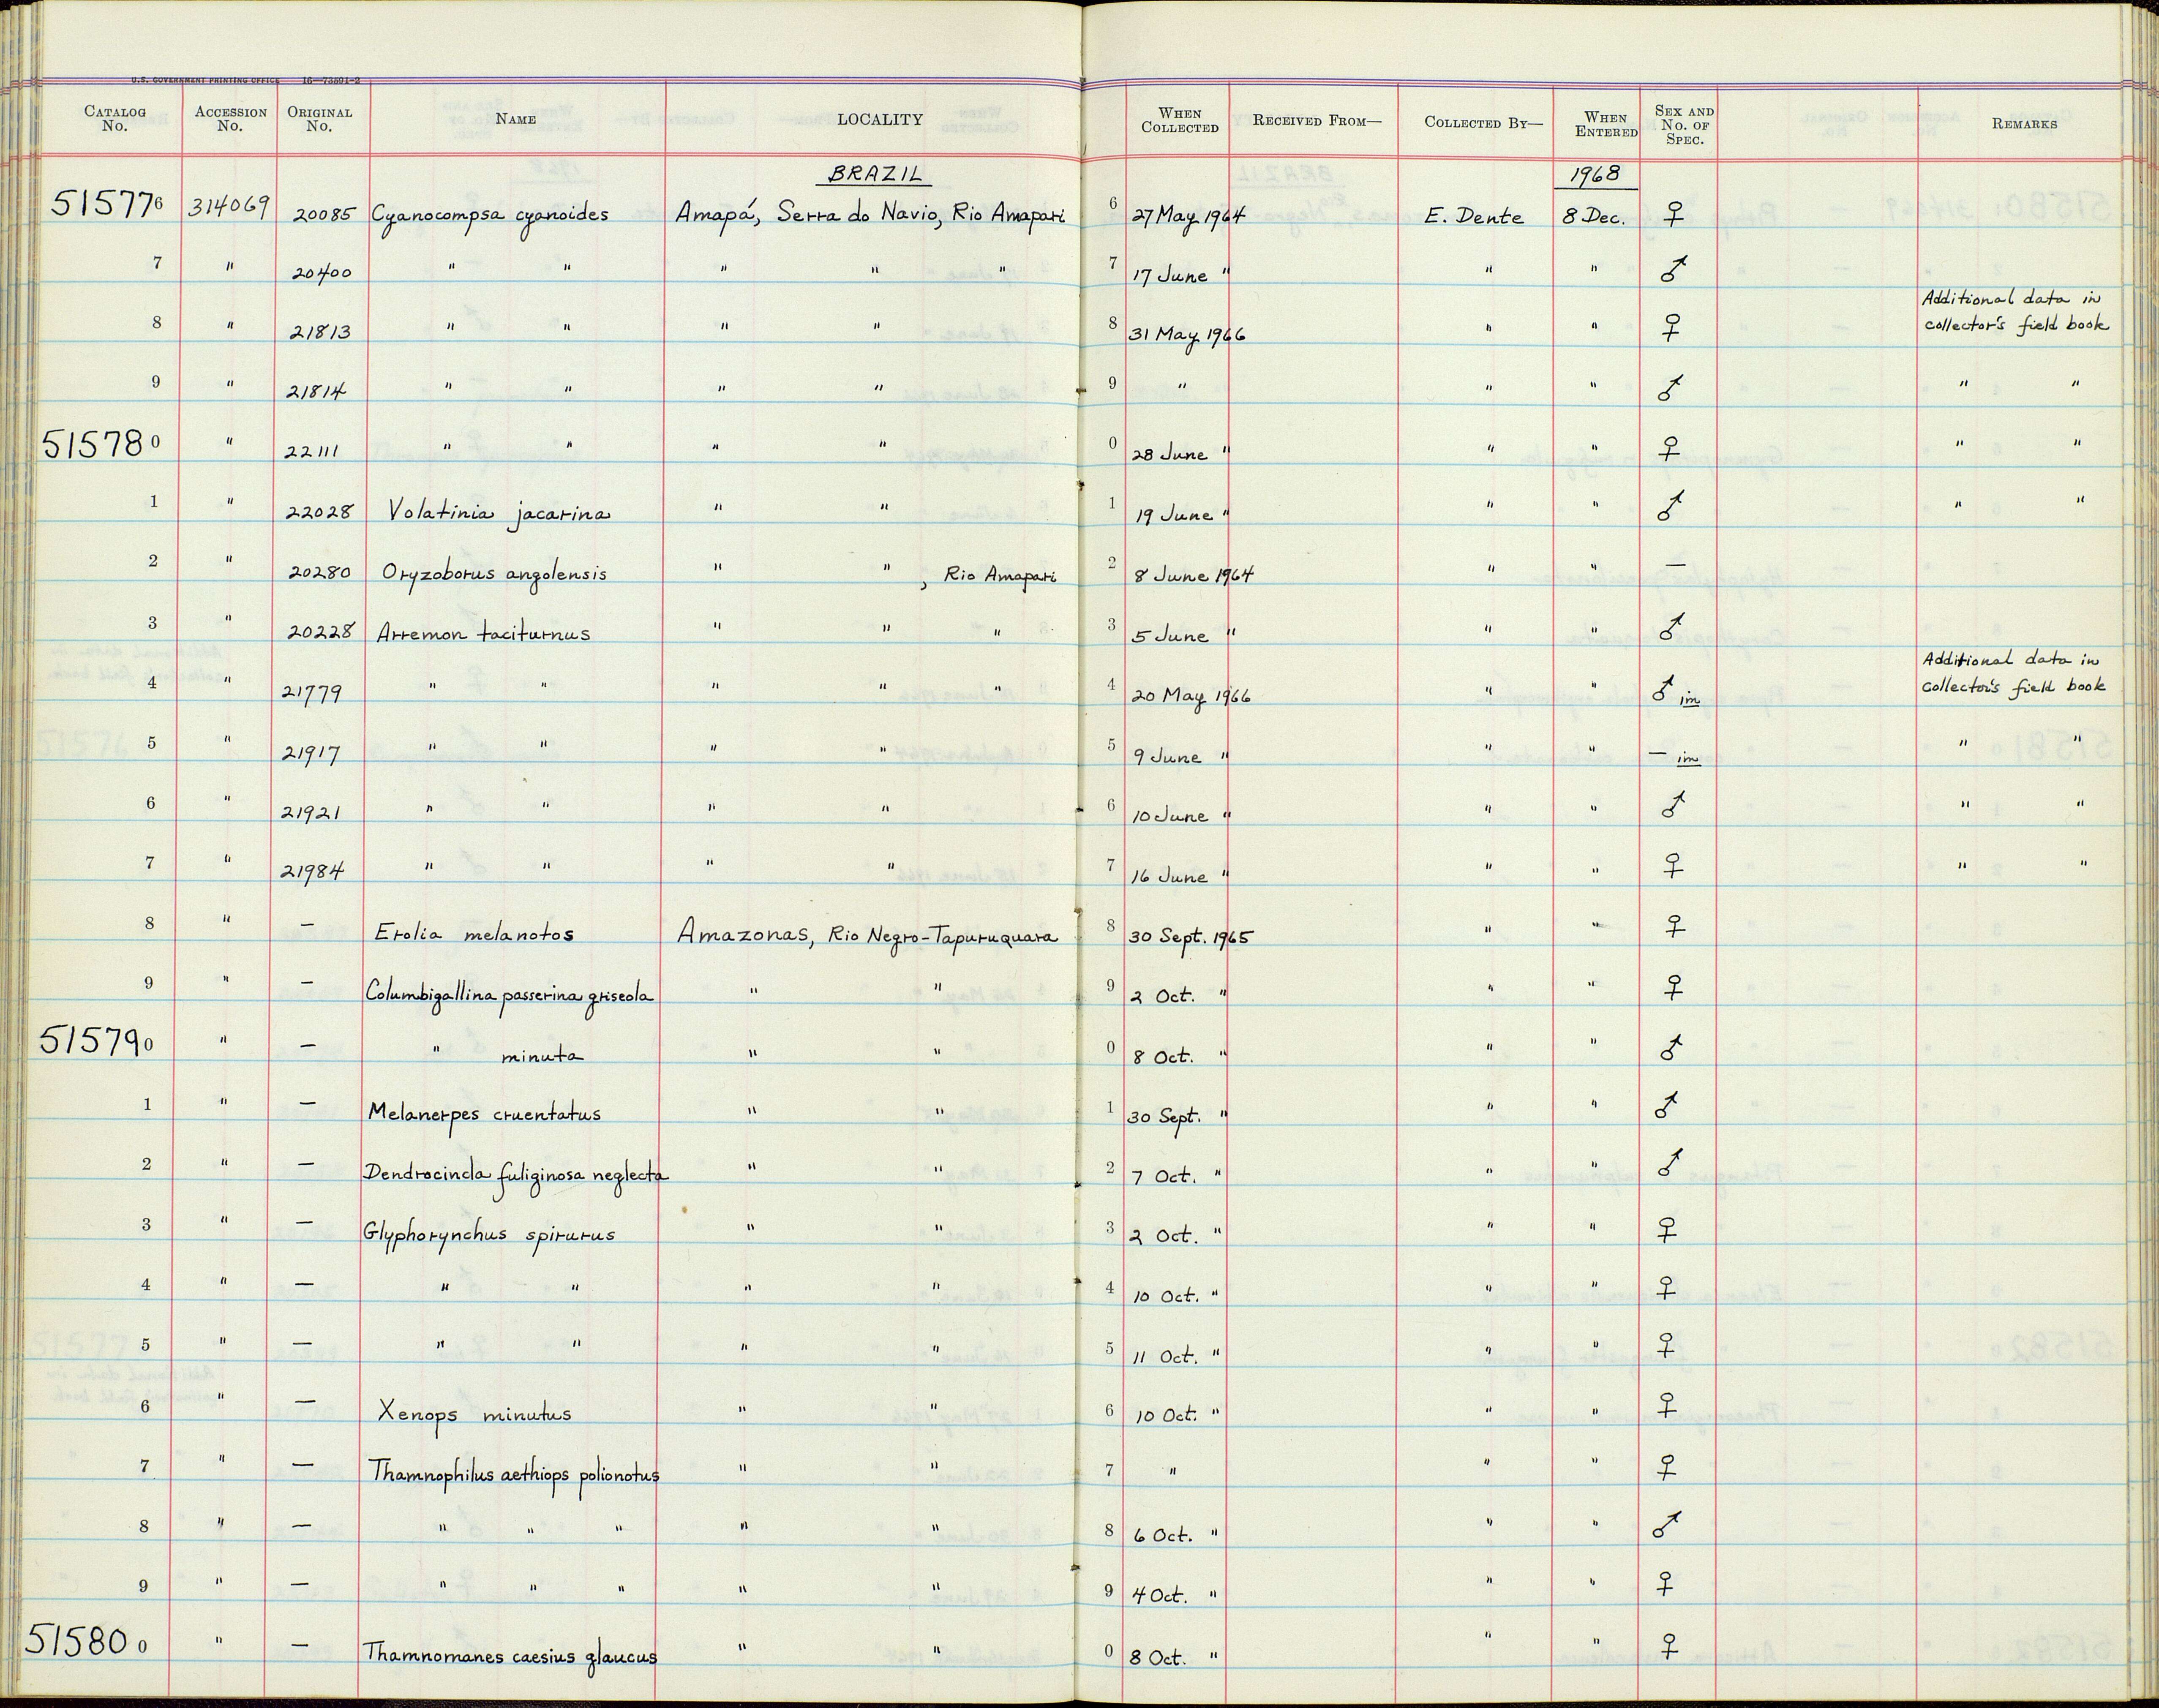 U.S. GOVERNMENT PRINTING OFFICE 16—73501-2
CATALOG No. ACCESSION No. ORIGINAL No. NAME LOCALITY WHEN COLLECTED RECEIVED FROM— COLLECTED BY— WHEN ENTERED SEX AND No. OF SPEC. REMARKS
BRAZIL 1968
515776 314069 20085 Cyanocompsa cyanoides Amapá, Serra do Navio, Rio Amapari 6 27 May 1964 E. Dente 8 Dec. ♀
7 " 20400 " " " " " 7 17 June " " " ♂
8 " 21813 " " " " 8 31 May 1966 " " ♀ Additional data in collector's field book
9 " 21814 " " " " 9 " " " ♂ " "
515780 " 22111 " " " " 0 28 June " " " ♀ " "
1 " 22028 Volatinia jacarina " " 1 19 June " " " ♂ " "
2 " 20280 Oryzoborus angolensis " " , Rio Amapari 2 8 June 1964 " " —
3 " 20228 Arremon taciturnus " " " 3 5 June " " " ♂
4 " 21779 " " " " " 4 20 May 1966 " " ♂ im Additional data in collector's field book
5 " 21917 " " " " 5 9 June " " " — im " "
6 " 21921 " " " " 6 10 June " " " ♂ " "
7 " 21984 " " " " 7 16 June " " " ♀ " "
8 " — Erolia melanotos Amazonas, Rio Negro-Tapuruquara 8 30 Sept. 1965 " " ♀
9 " — Columbigallina passerina griseola " " 9 2 Oct. " " " ♀
515790 " — " minuta " " 0 8 Oct. " " " ♂
1 " — Melanerpes cruentatus " " 1 30 Sept. " " " ♂
2 " — Dendrocincla fuliginosa neglecta " " 2 7 Oct. " " " ♂
3 " — Glyphorynchus spirurus " " 3 2 Oct. " " " ♀
4 " — " " " " 4 10 Oct. " " " ♀
5 " — " " " " 5 11 Oct. " " " ♀
6 " — Xenops minutus " " 6 10 Oct. " " " ♀
7 " — Thamnophilus aethiops polionotus " " 7 " " " ♀
8 " — " " " " " 8 6 Oct. " " " ♂
9 " — " " " " " 9 4 Oct. " " " ♀
515800 " — Thamnomanes caesius glaucus " " 0 8 Oct. " " " ♀